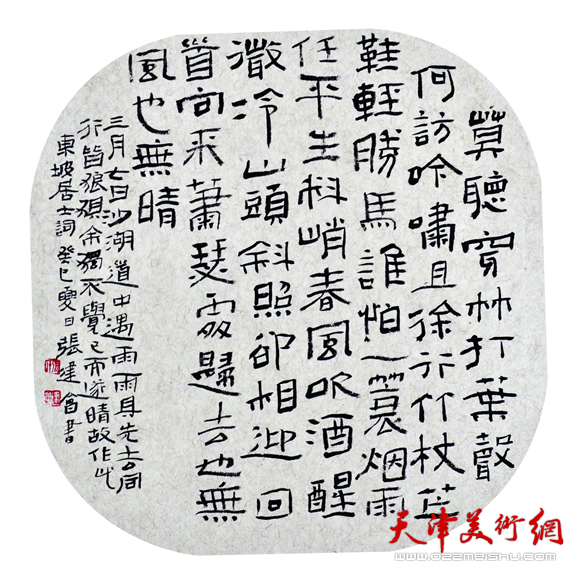 莫聽穿林打葉聲
何訪吟嘯且徐行竹杖芒
鞋輕勝馬誰怕一蓑烟雨
任平生料峭春風吹酒醒
微冷山頭斜照卻相迎回
首向来蕭瑟處歸去也無
風也無晴
三月七日沙湖道中遇雨雨具先去同
行皆狼狽余獨不覺已而遂晴故作此
東坡居士詞 癸巳夏日張建會書
天津美術網
www.022meishu.com